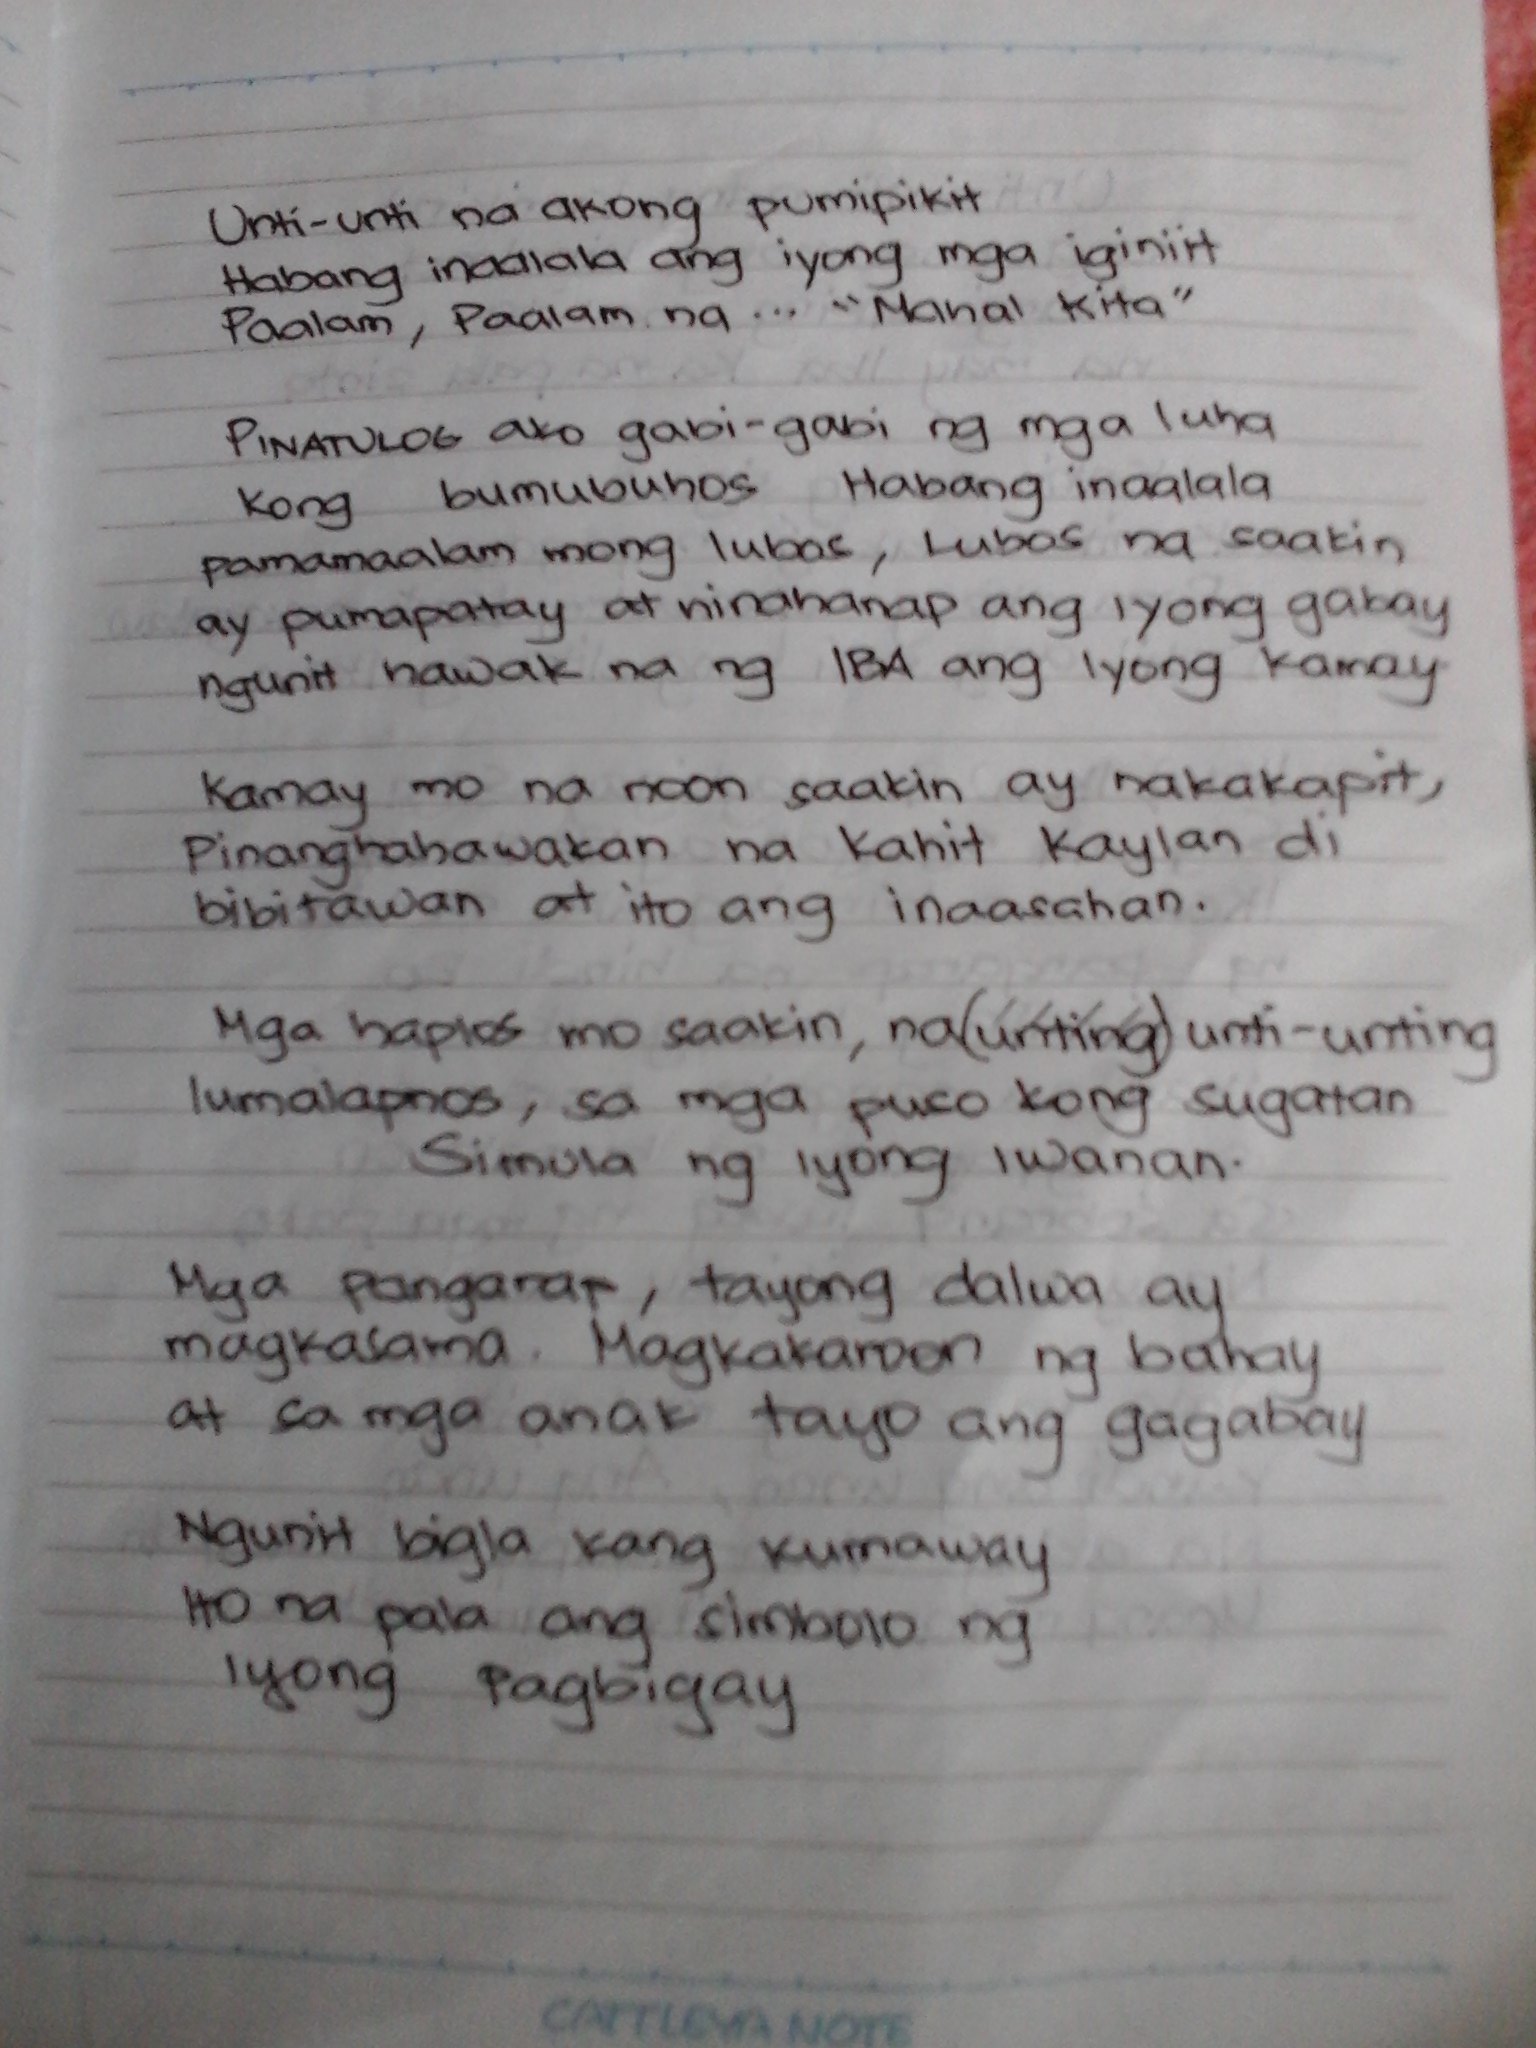 Unti-unti na akong pumipikit
Habang inaalala ang iyong mga iginiit
Paalam, Paalam na... "Mahal Kita"
PINATULOG ako gabi-gabi ng mga luha
kong bumubuhos Habang inaalala
pamamaalam mong lubos, Lubos na saakin
ay pumapatay at hinahanap ang iyong gabay
ngunit hawak na ng IBA ang iyong kamay
Kamay mo na noon saakin ay nakakapit,
Pinanghahawakan na kahit kaylan di
bibitawan at ito ang inaasahan.
Mga haplos mo saakin, na (unting) unti-unting
lumalapnos, sa mga puso kong sugatan
Simula ng iyong iwanan.
Mga pangarap, tayong dalwa ay
magkasama. Magkakaroon ng bahay
at sa mga anak tayo ang gagabay
Ngunit bigla kang kumaway
Ito na pala ang simbolo ng
iyong Pagbigay
CATTLEYA NOTE